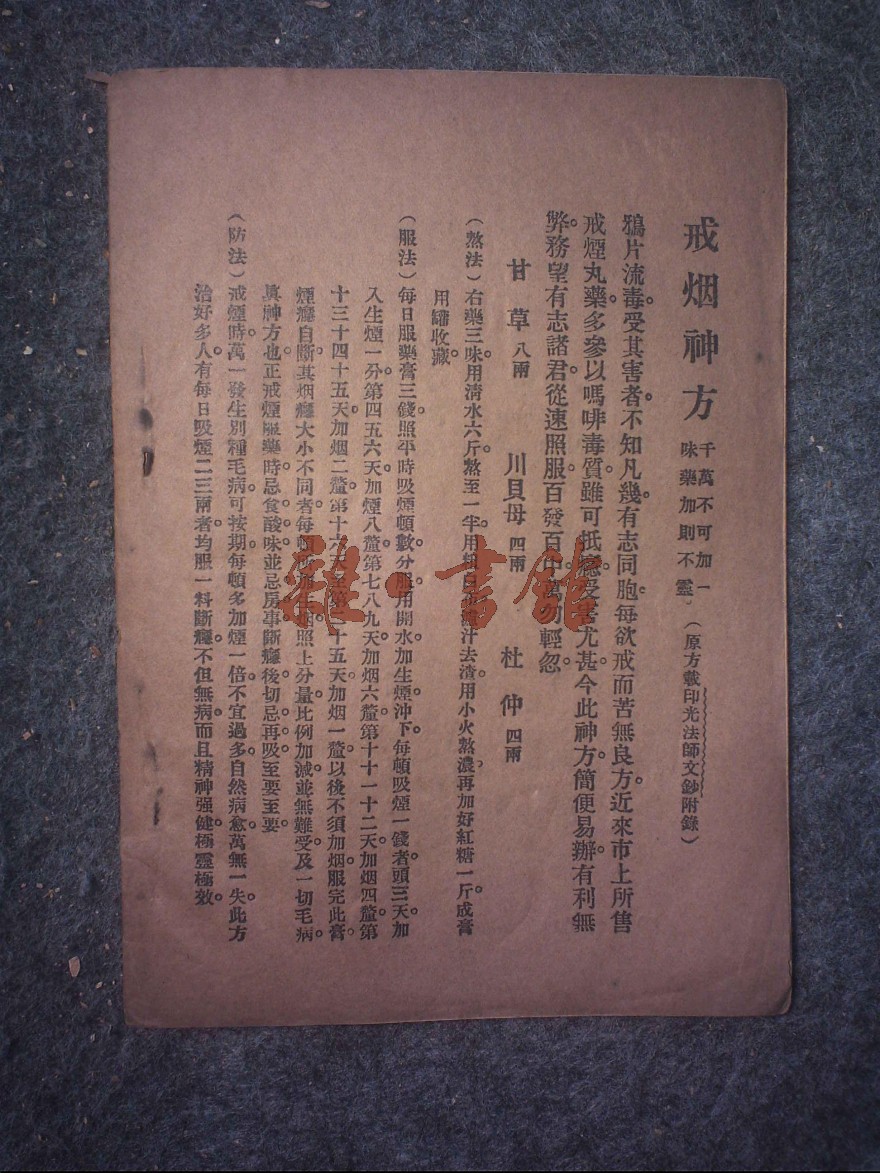 戒烟神方
千萬不可加一
味藥加則不靈
（原方載印光法師文鈔附錄）
鴉片流毒。受其害者。不知凡幾。有志同胞。每欲戒而苦無良方。近來市上所售
戒煙丸藥。多參以嗎啡毒質。雖可抵癮。受害尤甚。今此神方。簡便易辦。有利無
弊。務望有志諸君。從速照服。百發百中。萬勿輕忽。
甘草八兩　川貝母四兩　杜仲四兩
（熬法）右藥三味。用清水六斤。熬至一半。用 汁去渣。用小火熬濃。再加好紅糖一斤成膏。
用罐收藏。
（服法）每日服藥膏三錢。照平時吸煙頓數分服。用開水加生煙沖下。每頓吸煙一錢者。頭三天加
入生煙一分。第四五六天。加煙八釐。第七八九天。加烟六釐。第十十一十二天。加烟四釐。第
十三十四十五天。加烟二釐。第十六天至第二十五天。加烟一釐。以後不須加烟。服完此膏。
煙癮自斷。其烟癮大小不同者。每頓 烟。照上分量。比例加減。並無難受及一切毛病。
眞神方也。正戒煙服藥時。忌食酸味。並忌房事。斷癮後。切忌再吸。至要至要
（防法）戒煙時。萬一發生別種毛病。可按期每頓多加煙一倍。不宜過多。自然病愈。萬無一失。此方
治好多人。有每日吸煙二三兩者。均服一料斷癮。不但無病。而且精神强健。極靈極效。
雜·書館